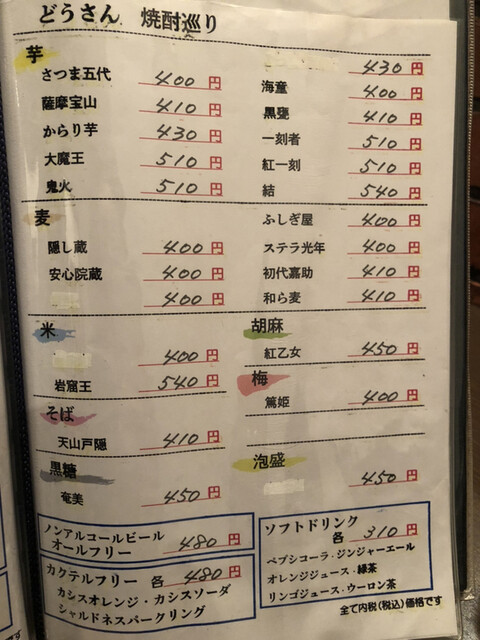 どうさん 焼酎巡り
芋
さつま五代 400円
薩摩宝山 410円
からり芋 430円
大魔王 510円
鬼火 510円
430円
海童 400円
黒甕 410円
一刻者 510円
紅一刻 510円
結 540円
麦
隠し蔵 400円
安心院蔵 400円
400円
ふしぎ屋 400円
ステラ光年 400円
初代嘉助 410円
和ら麦 410円
米
400円
岩窟王 540円
そば
天山戸隠 410円
黒糖
奄美 450円
胡麻
紅乙女 450円
梅
篤姫 400円
泡盛
450円
ノンアルコールビール
オールフリー 480円
カクテルフリー 各 480円
カシスオレンジ・カシスソーダ
シャルドネスパークリング
ソフトドリンク
各 310円
ペプシコーラ・ジンジャーエール
オレンジジュース・緑茶
リンゴジュース・ウーロン茶
全て内税(税込)価格です